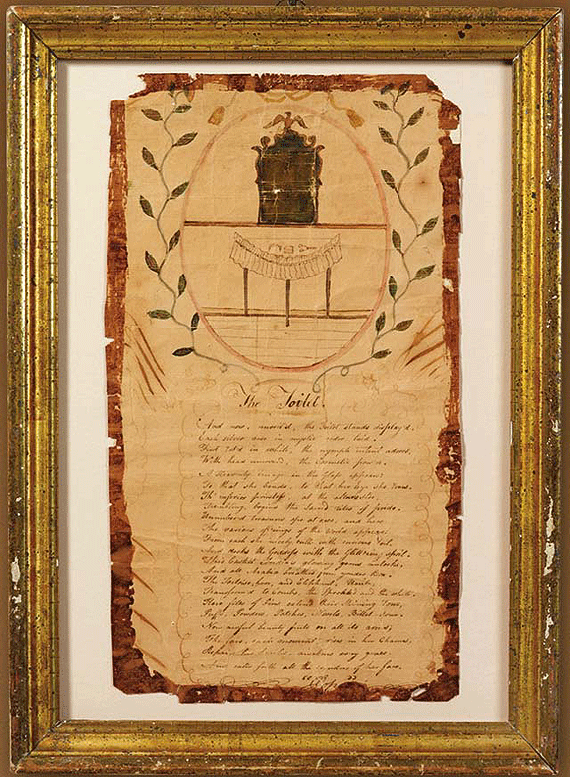 The Toilet.
And now, unveil'd, the Toilet stands display'd,
Each silver vase in mystic order laid.
First rob'd in white, the nymph intent adores,
With head uncover'd, the Cosmetic pow'rs.
A Heavenly image in the Glass appears,
To that she bends, to that her eyes she rears.
Th' inferior priestess, at the altar's side,
Trembling, begins the sacred rites of pride.
Unnumber'd treasures ope at once, and here
The various off'rings of the world appear;
From each she nicely culls with curious toil,
And decks the Goddess with the Glitt'ring spoil.
This Casket India's glowing gems unlocks,
And all Arabia breathes from yonder box.
The Tortoise here, and Elephant Unite,
Transform'd to Combs, the Speckled and the white.
Here files of Pins extend their shining rows,
Puffs, Powders, Patches, Billet doux.
Now awful beauty puts on all its arms;
The fair, each moment, rises in her Charms,
Repairs her smiles, awakens every grace
And calls forth all the wonders of her face.